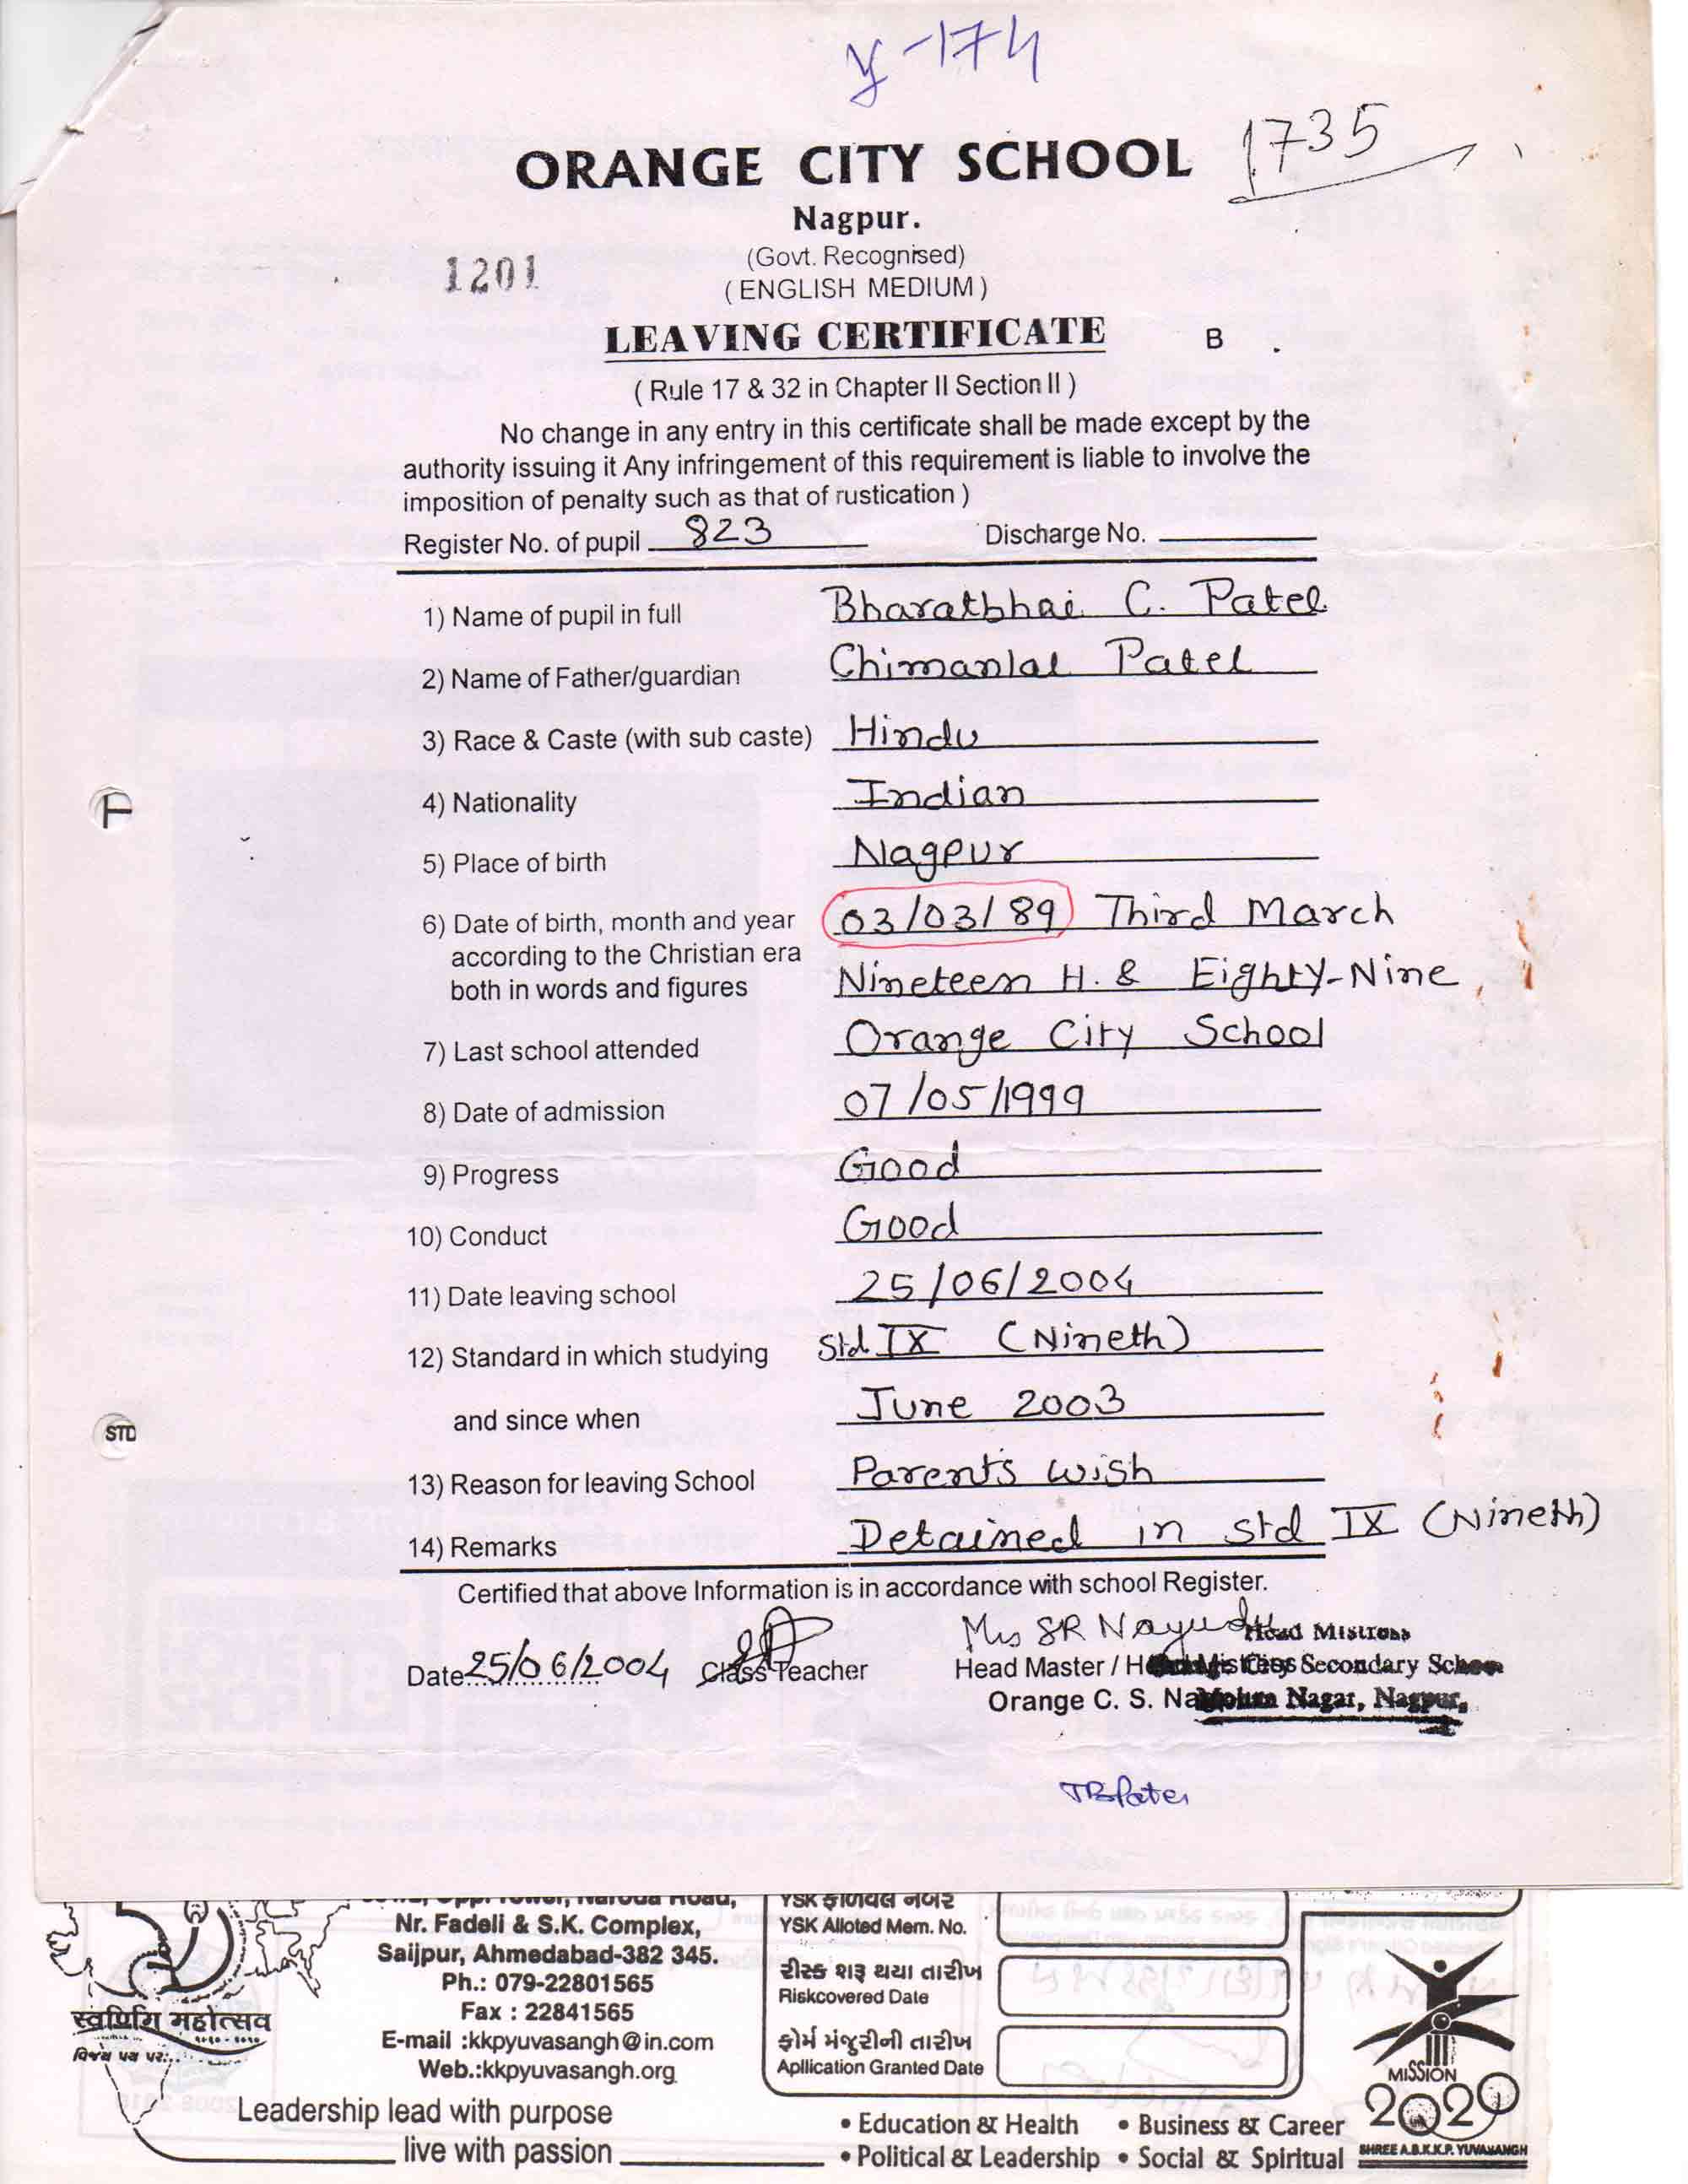 y-174
1735
ORANGE CITY SCHOOL
Nagpur.
(Govt. Recognised)
1201
( ENGLISH MEDIUM )
LEAVING CERTIFICATE B
( Rule 17 & 32 in Chapter II Section II )
No change in any entry in this certificate shall be made except by the
authority issuing it Any infringement of this requirement is liable to involve the
imposition of penalty such as that of rustication )
Register No. of pupil 823 Discharge No.
1) Name of pupil in full Bharatbhai C. Patel
2) Name of Father/guardian Chimanlal Patel
3) Race & Caste (with sub caste) Hindu
4) Nationality Indian
5) Place of birth Nagpur
6) Date of birth, month and year 03/03/89 Third March
according to the Christian era
both in words and figures Nineteen H. & Eighty-Nine
7) Last school attended Orange City School
8) Date of admission 07/05/1999
9) Progress Good
10) Conduct Good
11) Date leaving school 25/06/2004
12) Standard in which studying Std IX (Nineth)
and since when June 2003
13) Reason for leaving School Parents wish
14) Remarks Detained in std IX (Nineth)
Certified that above Information is in accordance with school Register.
Mrs SR Nayudu Head Mistress
Date 25/06/2004 Class Teacher Head Master / Secondary
Orange C. S. Nagar, Nagpur,
TBPatel
Naroda Road,
Nr. Fadeli & S.K. Complex,
Saijpur, Ahmedabad-382 345.
Ph.: 079-22801565
Fax : 22841565
E-mail :kkpyuvasangh@in.com
Web.:kkpyuvasangh.org
YSK
YSK Alloted Mem. No.
રીસ્ક શરૂ થયા તારીખ
Riskcovered Date
ફોર્મ મંજૂરીની તારીખ
Apllication Granted Date
महोत्सव
Leadership lead with purpose
live with passion
• Education & Health • Business & Career
• Political & Leadership • Social & Spiritual
MISSION
2020
SHREE A.B.K.K.P. YUVASANGH
STD